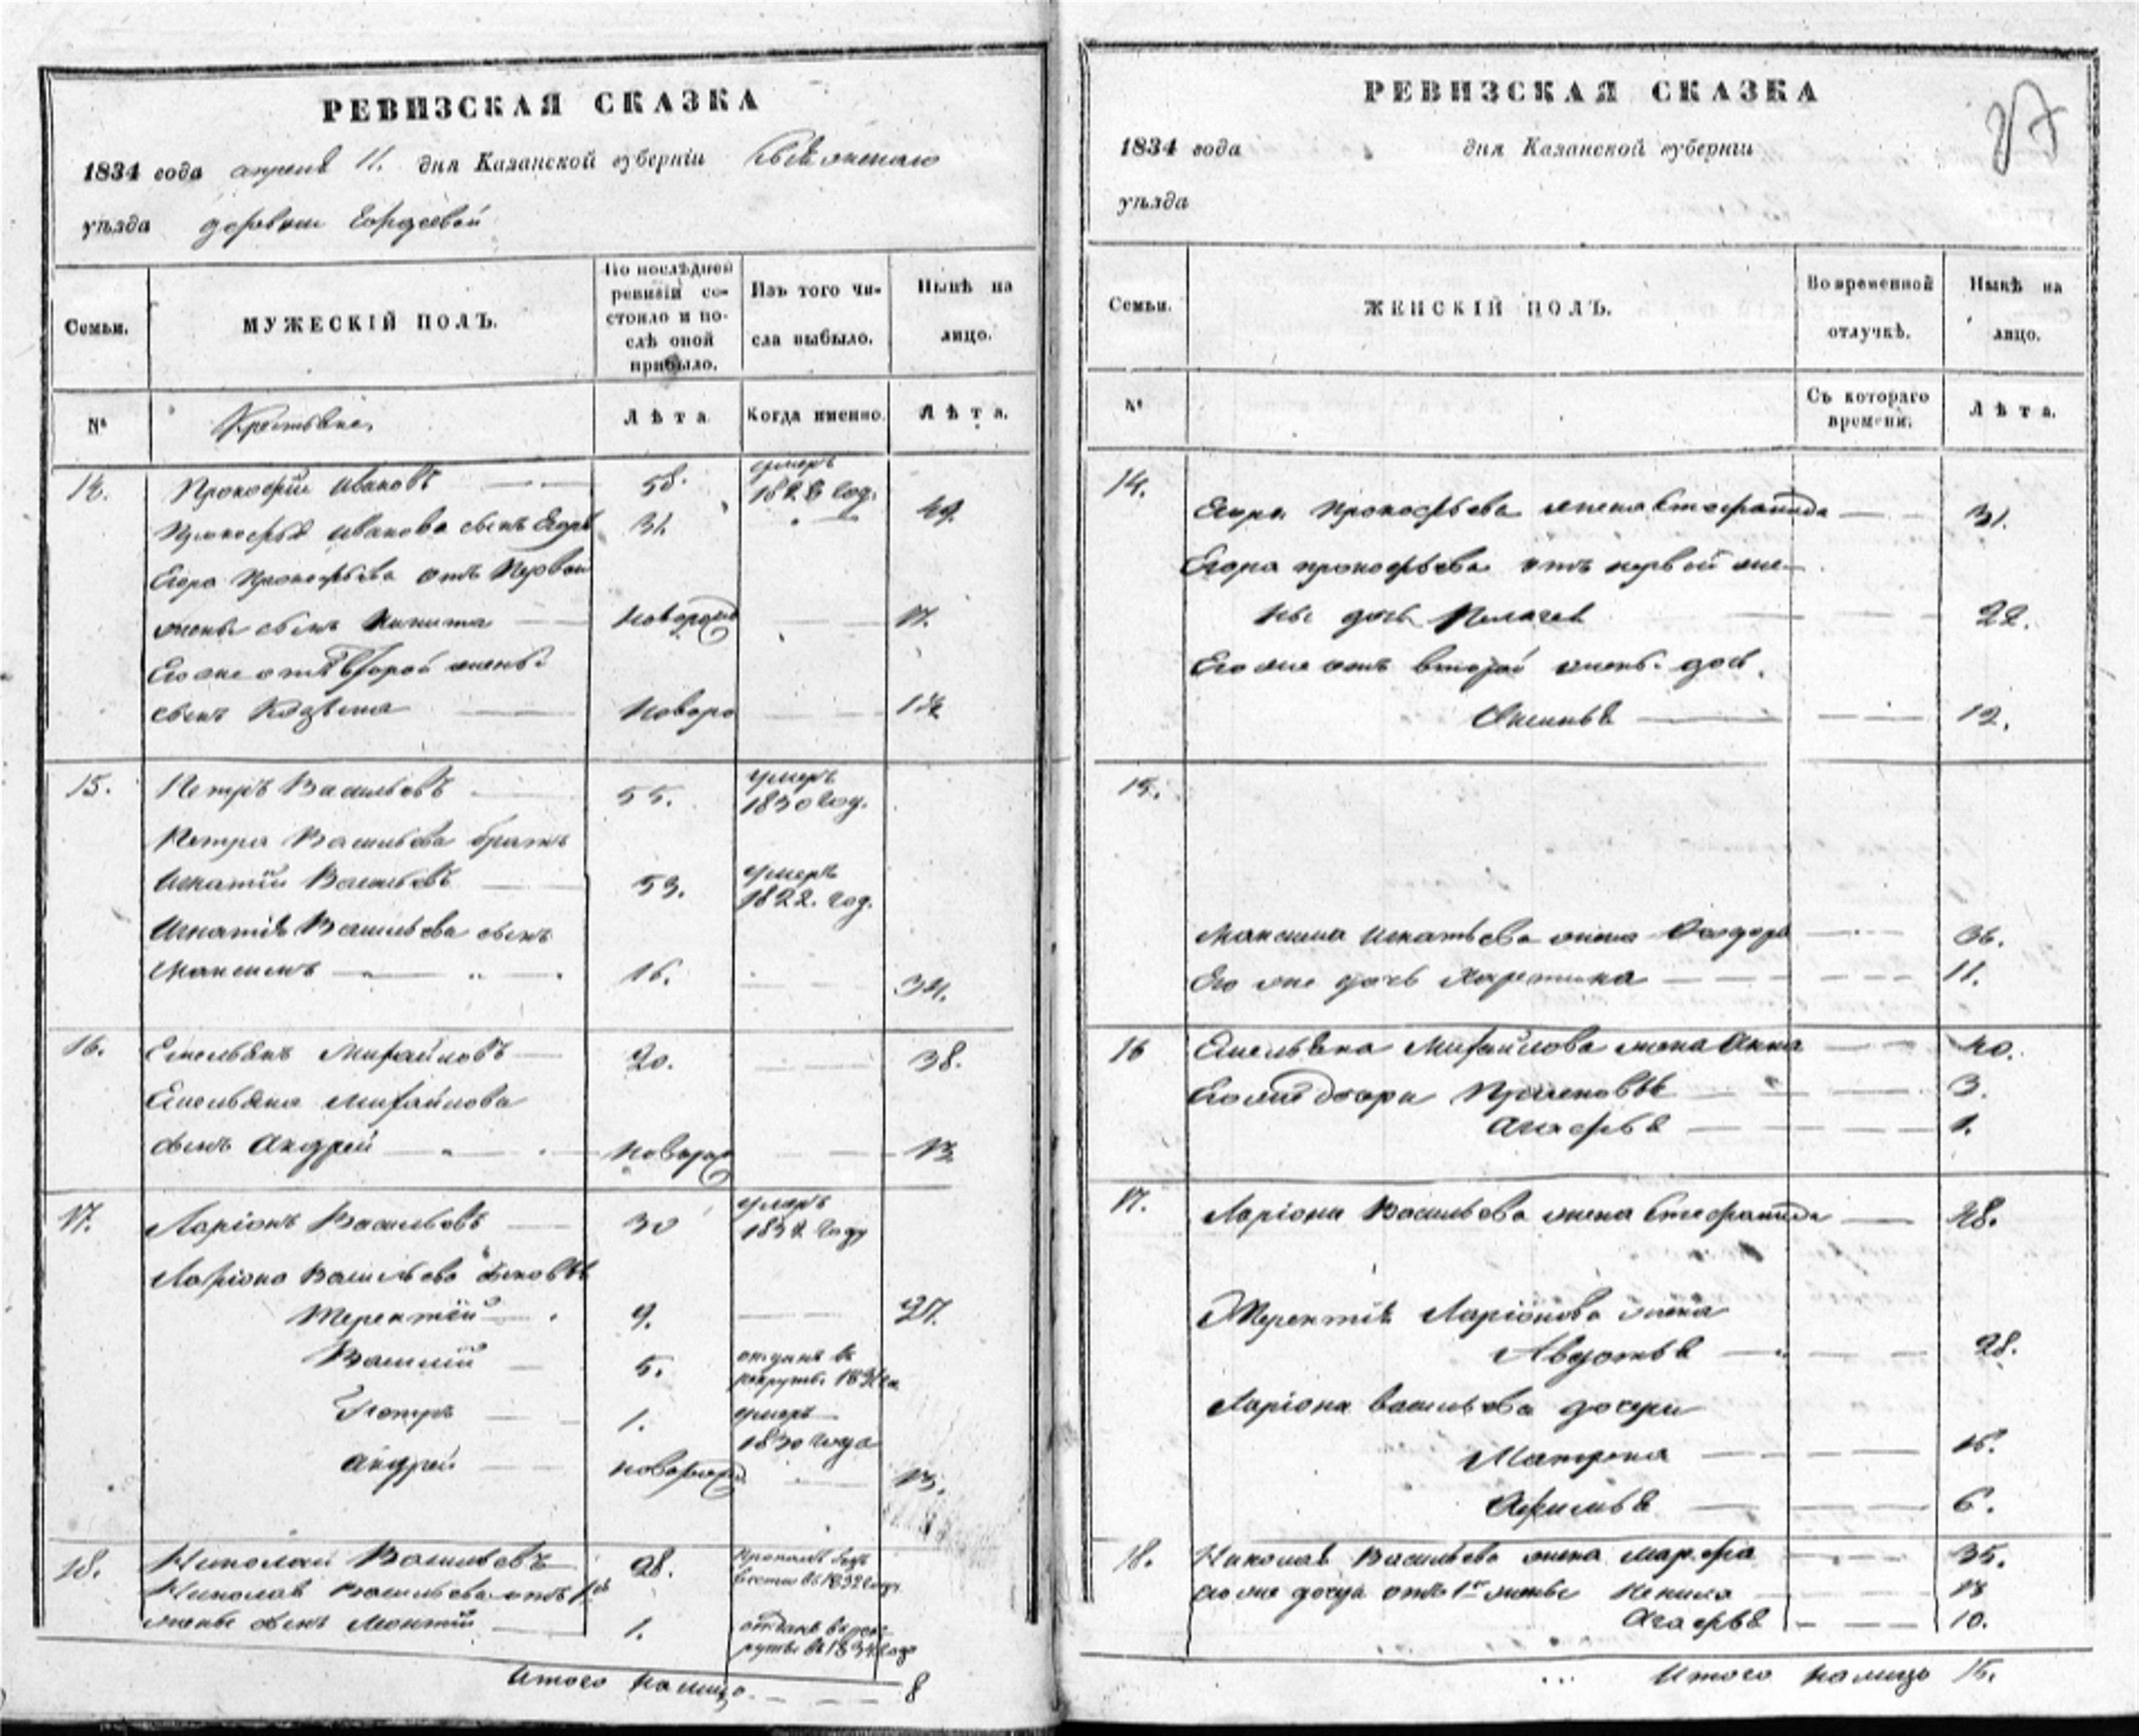 РЕВИЗСКАЯ СКАЗКА
1834 года апреля 11. дня Казанской губерніи Свіяжскаго
уѣзда деревни Гордѣевой
Семьи.
МУЖЕСКІЙ ПОЛЪ.
По послѣдней
ревизіи со-
стояло и по-
слѣ оной
прибыло.
Изъ того чи-
сла выбыло.
Нынѣ на
лицо.
№
Крестьяне,
Лѣта
Когда именно.
Лѣта.
14. Прокофій Ивановъ 58. умеръ 1828 год.
Прокофья Иванова сынъ Егоръ 31. 49.
Егора Прокофьева отъ первой
жены сынъ Никита новорожд 17.
Его же отъ второй жены
сынъ Козьма новоро 14
15. Петръ Васильевъ 55. умеръ 1830 год.
Петра Васильева братъ
Игнатій Васильевъ 53. умеръ 1822. год.
Игнатія Васильева сынъ
Максимъ 16. 34.
16. Емельянъ Михайловъ 20. 38.
Емельяна Михайлова
сынъ Андрей новорож 13.
17. Ларіонъ Васильевъ 30 умеръ 1832 году
Ларіона Васильева сыновья
Терентій 9. 27.
Василій 5. отданъ въ рекруты 1831 го
Петръ 1. умеръ 1830 года
Андрей новорожд 13.
18. Николай Васильевъ 28. пропалъ безъ вести въ 1832 году
Николая Васильева отъ 1й
жены сынъ Леонтій 1. отданъ въ рек-
руты въ 1834 году
Итого на лицо 8
РЕВИЗСКАЯ СКАЗКА
27
1834 года дня Казанской губерніи
уѣзда
Семьи.
ЖЕНСКІЙ ПОЛЪ.
Во временной
отлучкѣ.
Нынѣ на
лицо.
№
Съ котораго
времени.
Лѣта.
14.
Егора Прокофьева жена Стефанида 31.
Егора Прокофьева отъ первой же-
ны дочь Пелагея 22.
Его же отъ второй жены дочь
Аксинья 12.
15.
Максима Игнатьева жена Федора 36.
Его же дочь Харетина 11.
16 Емельяна Михайлова жена Анна 40.
Его же дочери Прасковья 3.
Агафья 1.
17. Ларіона Васильева жена Стефанида 48.
Терентія Ларіонова жена
Авдотья 28.
Ларіона Васильева дочери
Матрена 15.
Афимья 6.
18. Николая Васильева жена Марфа 35.
Его же дочери отъ 1й жены Ненила 18
Агафья 10.
Итого на лицо 15.